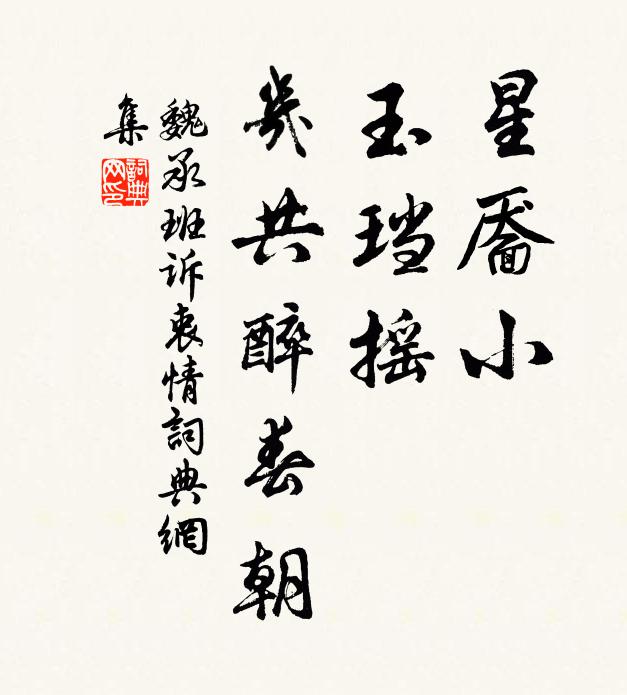 星靥小
玉珰摇
幾共醉春朝
魏承班诉衷情詞典網
集
詞典网印